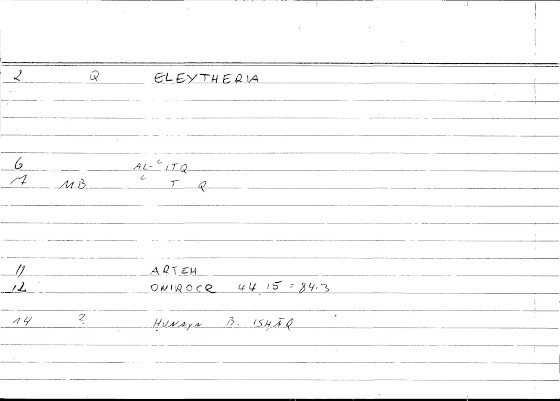 2 Q ELEYTHERIA
6 AL-ʿITQ
7 MB ʿ T Q
11 ARTEM
12 ONIROCR 44,15 = 84.3
14 ? ḤUNAYN B. ISḤĀQ